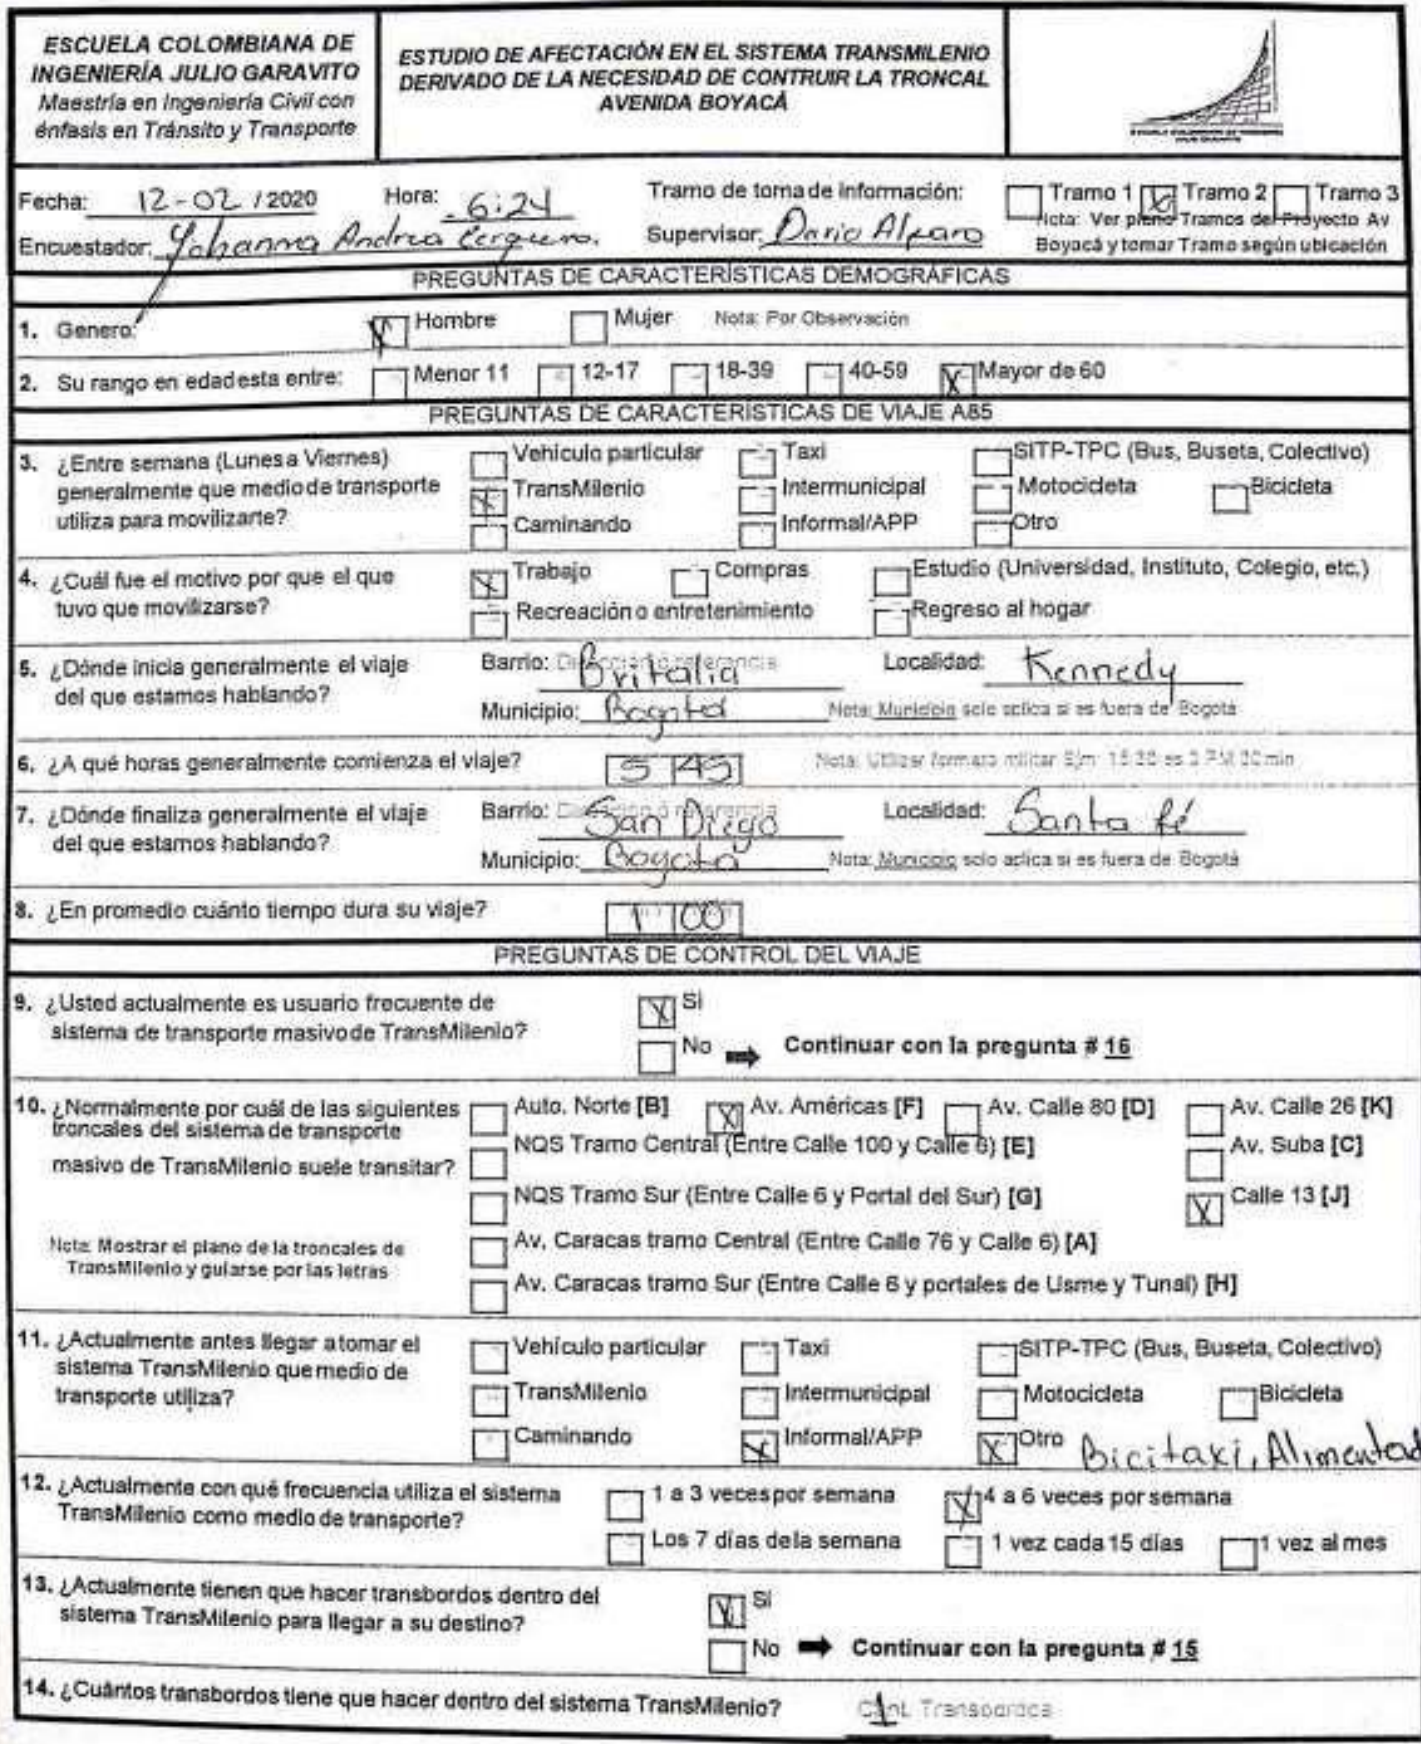 ESCUELA COLOMBIANA DE
INGENIERÍA JULIO GARAVITO
Maestría en Ingeniería Civil con
énfasis en Tránsito y Transporte
ESTUDIO DE AFECTACIÓN EN EL SISTEMA TRANSMILENIO
DERIVADO DE LA NECESIDAD DE CONTRUIR LA TRONCAL
AVENIDA BOYACÁ
Fecha: 12-02 / 2020 Hora: 6:24 Tramo de toma de información: Tramo 1 Tramo 2 Tramo 3
Nota: Ver plano Tramos del Proyecto Av
Encuestador: Yohanna Andrea Supervisor: Dario Alfaro Boyacá y tomar Tramo según ubicación
PREGUNTAS DE CARACTERÍSTICAS DEMOGRÁFICAS
1. Genero: Hombre Mujer Nota: Por Observación
2. Su rango en edad esta entre: Menor 11 12-17 18-39 40-59 Mayor de 60
PREGUNTAS DE CARACTERÍSTICAS DE VIAJE A85
3. ¿Entre semana (Lunes a Viernes)
generalmente que medio de transporte
utiliza para movilizarte?
Vehículo particular Taxi SITP-TPC (Bus, Buseta, Colectivo)
TransMilenio Intermunicipal Motocicleta Bicicleta
Caminando Informal/APP Otro
4. ¿Cuál fue el motivo por que el que
tuvo que movilizarse?
Trabajo Compras Estudio (Universidad, Instituto, Colegio, etc.)
Recreación o entretenimiento Regreso al hogar
5. ¿Dónde inicia generalmente el viaje
del que estamos hablando?
Barrio: Britalia Localidad: Kennedy
Municipio: Bogotá Nota: Municipio solo aplica si es fuera de Bogotá
6. ¿A qué horas generalmente comienza el viaje? 5 45 Nota: Utilizar formato militar Ejm: 15:20 es 3 PM 20 min
7. ¿Dónde finaliza generalmente el viaje
del que estamos hablando?
Barrio: San Diego Localidad: Santa fé
Municipio: Bogotá Nota: Municipio solo aplica si es fuera de Bogotá
8. ¿En promedio cuánto tiempo dura su viaje? 1 00
PREGUNTAS DE CONTROL DEL VIAJE
9. ¿Usted actualmente es usuario frecuente de
sistema de transporte masivo de TransMilenio?
Si
No ➡ Continuar con la pregunta # 16
10. ¿Normalmente por cuál de las siguientes
troncales del sistema de transporte
masivo de TransMilenio suele transitar?
Nota: Mostrar el plano de la troncales de
TransMilenio y guiarse por las letras
Auto. Norte [B] Av. Américas [F] Av. Calle 80 [D] Av. Calle 26 [K]
NQS Tramo Central (Entre Calle 100 y Calle 6) [E] Av. Suba [C]
NQS Tramo Sur (Entre Calle 6 y Portal del Sur) [G] Calle 13 [J]
Av. Caracas tramo Central (Entre Calle 76 y Calle 6) [A]
Av. Caracas tramo Sur (Entre Calle 6 y portales de Usme y Tunal) [H]
11. ¿Actualmente antes llegar a tomar el
sistema TransMilenio que medio de
transporte utiliza?
Vehículo particular Taxi SITP-TPC (Bus, Buseta, Colectivo)
TransMilenio Intermunicipal Motocicleta Bicicleta
Caminando Informal/APP Otro Bicitaxi, Alimentad
12. ¿Actualmente con qué frecuencia utiliza el sistema
TransMilenio como medio de transporte?
1 a 3 veces por semana 4 a 6 veces por semana
Los 7 días de la semana 1 vez cada 15 días 1 vez al mes
13. ¿Actualmente tienen que hacer transbordos dentro del
sistema TransMilenio para llegar a su destino?
Si
No ➡ Continuar con la pregunta # 15
14. ¿Cuántos transbordos tiene que hacer dentro del sistema TransMilenio? 1